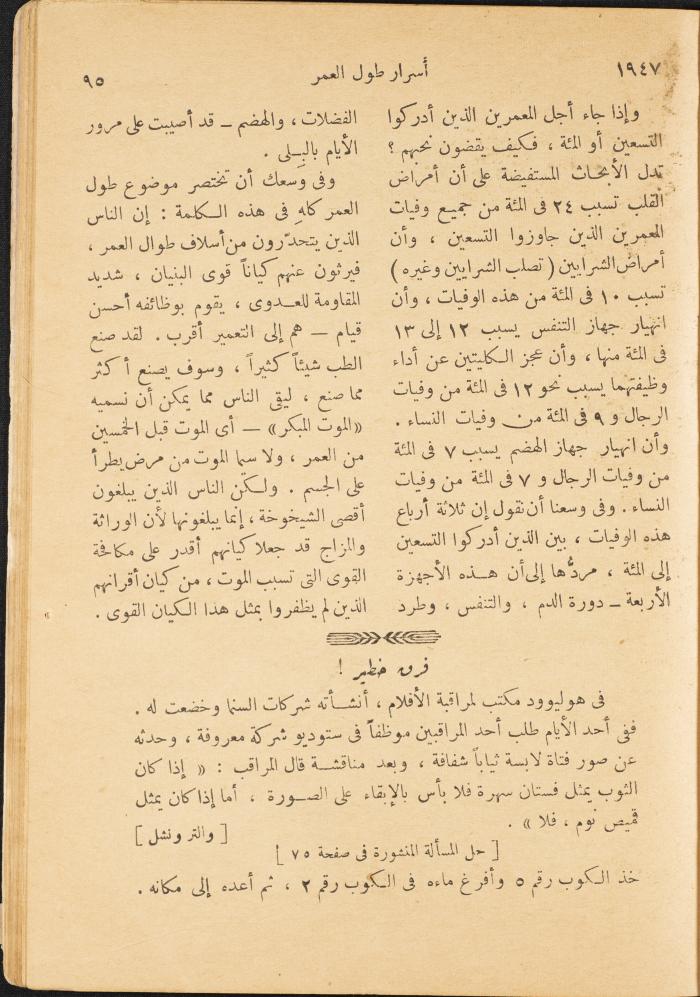 ١٩٤٧
أسرار طول العمر
٩٥
وإذا جاء أجل المعمرين الذين أدركوا
التسعين أو المئة ، فكيف يقضون نحبهم ؟
تدل الأبحاث المستفيضة على أن أمراض
القلب تسبب ٢٤ فى المئة من جميع وفيات
المعمرين الذين جاوزوا التسعين ، وأن
أمراض الشرايين ( تصلب الشرايين وغيره )
تسبب ١٠ فى المئة من هذه الوفيات ، وأن
انهيار جهاز التنفس يسبب ١٢ إلى ١٣
فى المئة منها ، وأن عجز الكليتين عن أداء
وظيفتهما يسبب نحو ١٢ فى المئة من وفيات
الرجال و ٩ فى المئة من وفيات النساء .
وأن انهيار جهاز الهضم يسبب ٧ فى المئة
من وفيات الرجال و ٧ فى المئة من وفيات
النساء . وفى وسعنا أن نقول إن ثلاثة أرباع
هذه الوفيات ، بين الذين أدركوا التسعين
إلى المئة ، مردُّها إلى أن هذه الأجهزة
الأربعة — دورة الدم ، والتنفس ، وطرد
الفضلات ، والهضم — قد أصيبت على مرور
الأيام بالبِلى .
وفى وسعك أن تختصر موضوع طول
العمر كله فى هذه الكلمة : إن الناس
الذين يتحدّرون من أسلاف طوال العمر ،
فيرثون عنهم كياناً قوى البنيان ، شديد
المقاومة للعدوى ، يقوم بوظائفه أحسن
قيام — هم إلى التعمير أقرب . لقد صنع
الطب شيئاً كثيراً ، وسوف يصنع أكثر
مما صنع ، ليقى الناس مما يمكن أن نسميه
«الموت المبكر» — أى الموت قبل الخمسين
من العمر ، ولا سيما الموت من مرض يطرأ
على الجسم . ولكن الناس الذين يبلغون
أقصى الشيخوخة ، إنما يبلغونها لأن الوراثة
والمزاج قد جعلا كيانهم أقدر على مكافحة
القوى التى تسبب الموت ، من كيان أقرانهم
الذين لم يظفروا بمثل هذا الكيان القوى .
فرق خطير !
فى هوليوود مكتب لمراقبة الأفلام ، أنشأته شركات السنما وخضعت له .
ففى أحد الأيام طلب أحد المراقبين موظفاً فى ستوديو شركة معروفة ، وحدثه
عن صور فتاة لابسة ثياباً شفافة ، وبعد مناقشة قال المراقب : « إذا كان
الثوب يمثل فستان سهرة فلا بأس بالإبقاء على الصورة ، أما إذا كان يمثل
قميص نوم ، فلا » .
[ والتر ونشل ]
[ حل المسألة المنشورة فى صفحة ٧٥ ]
خذ الكوب رقم ٥ وأفرغ ماءه فى الكوب رقم ٢ ، ثم أعده إلى مكانه .